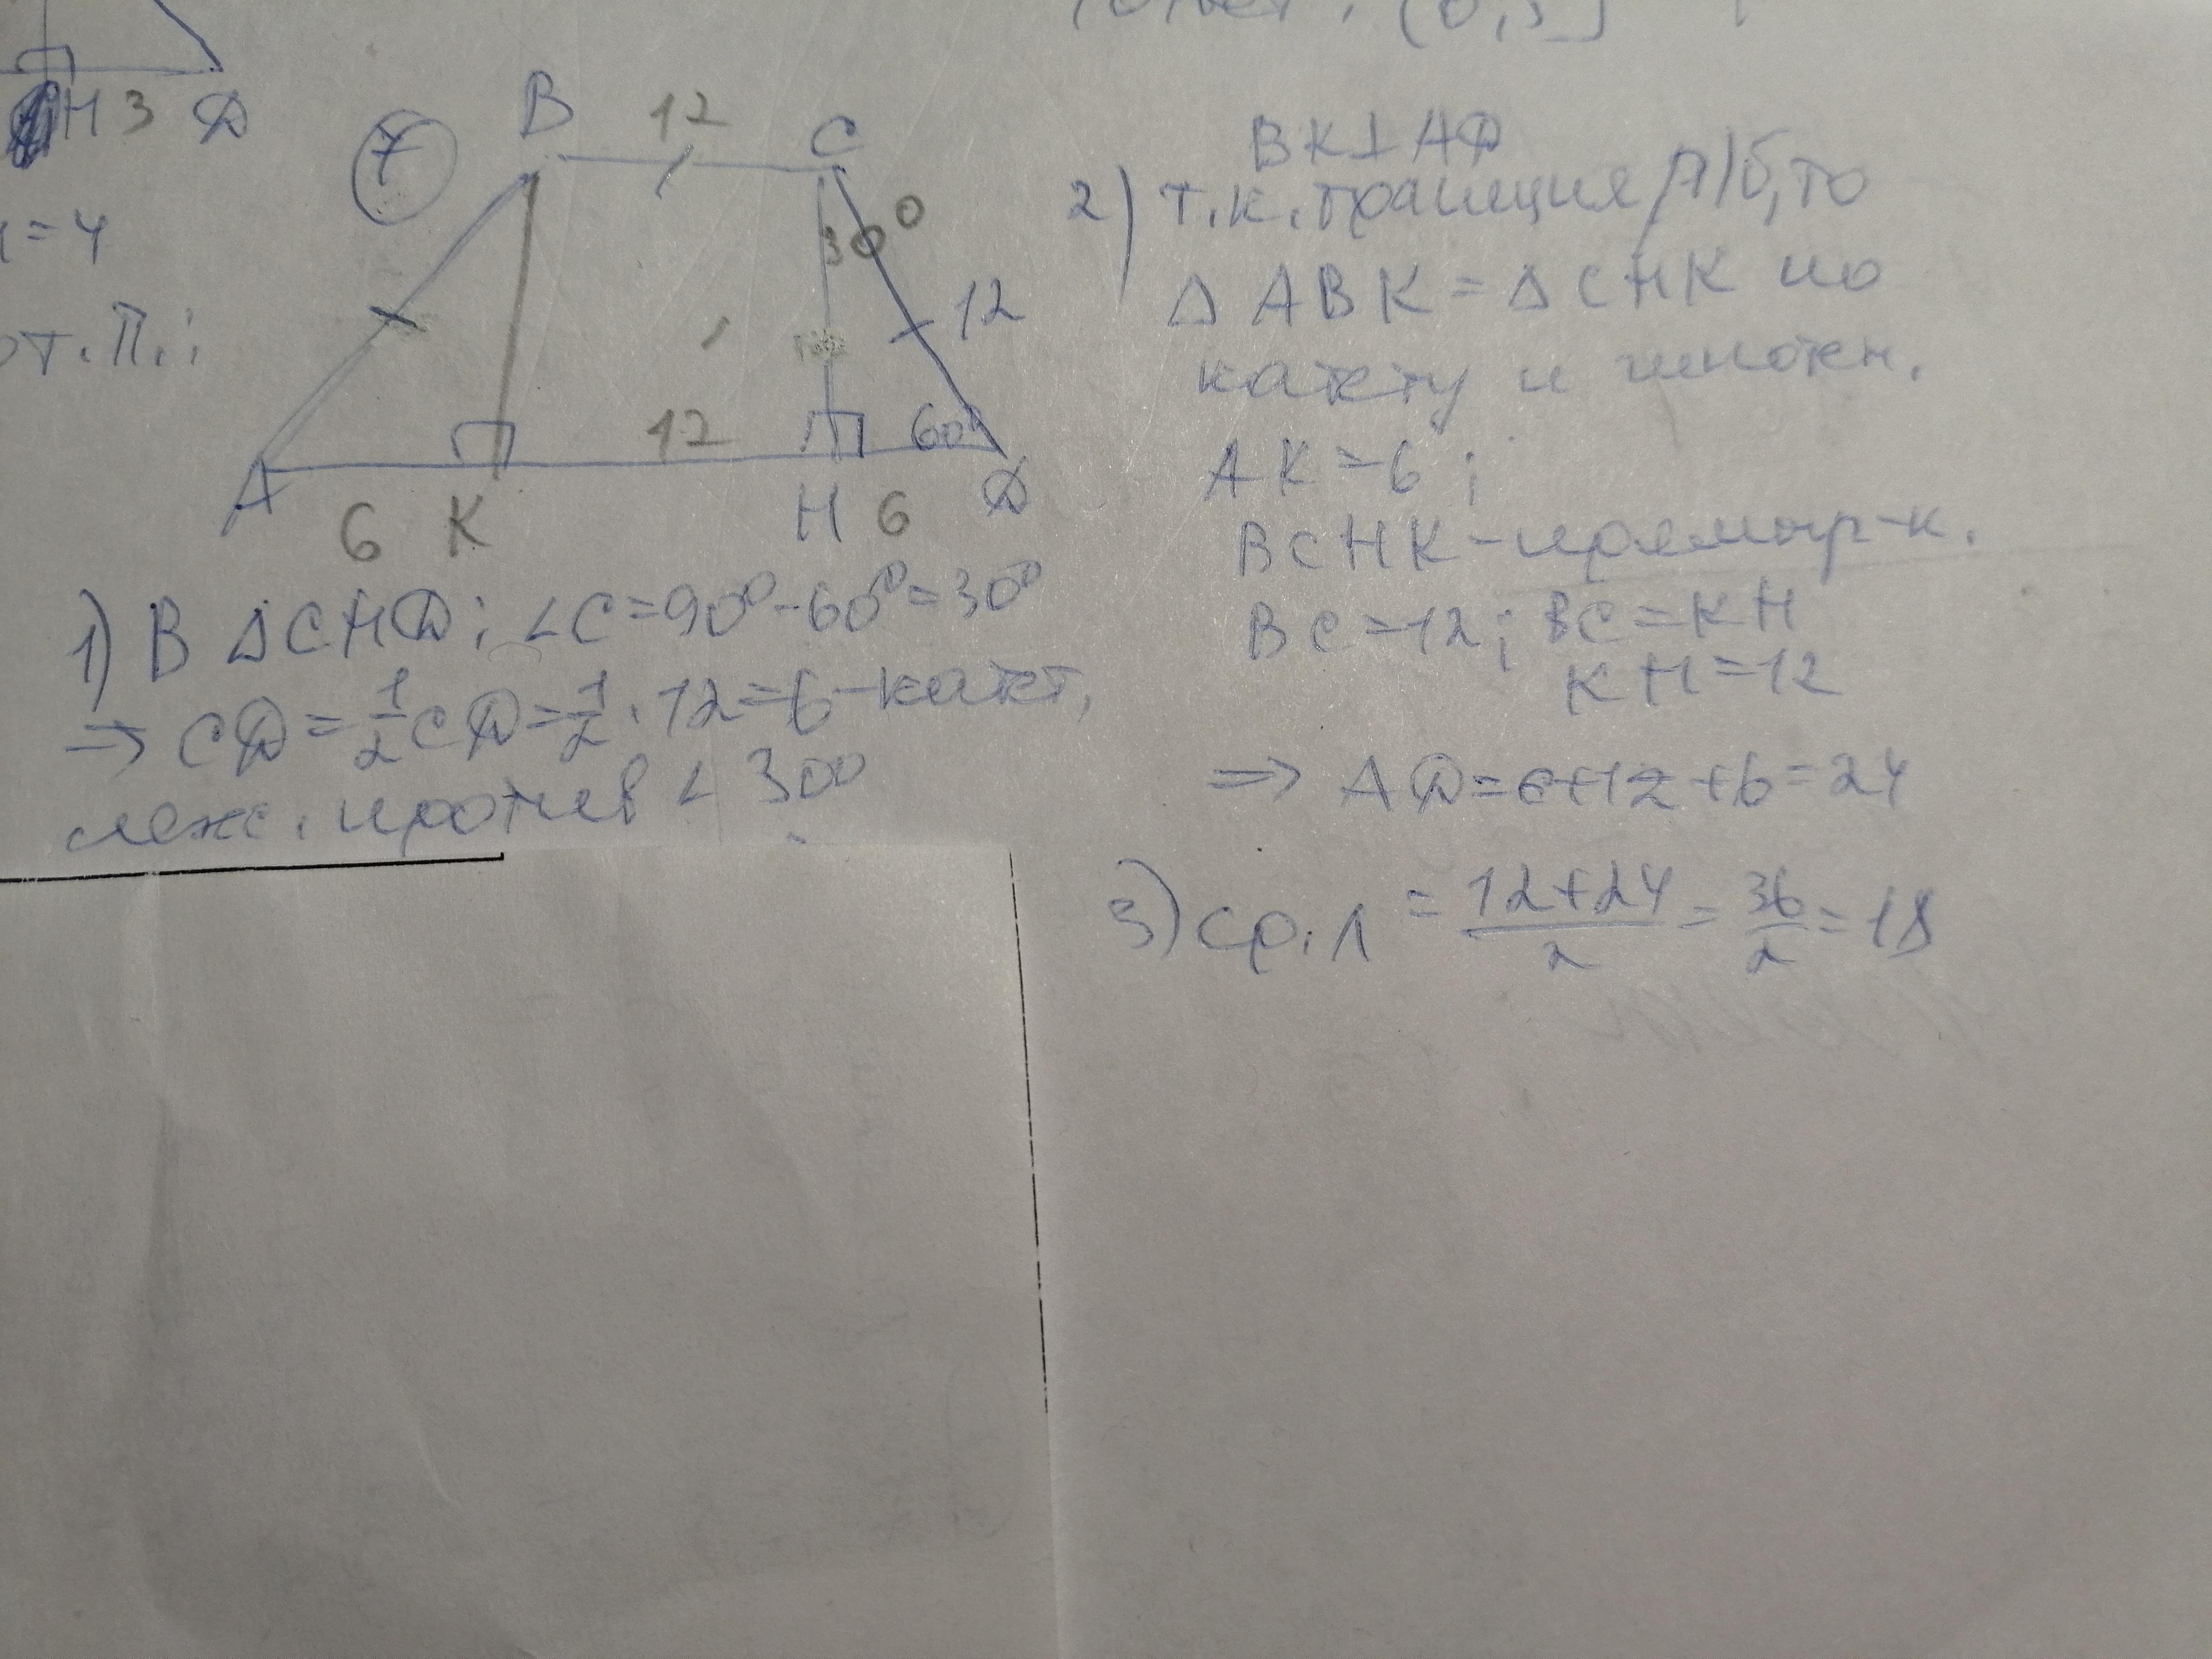 Н 3 D
=4
от. П.:
7
B 12 C
30°
12
12 60°
A 6 K H 6 D
1) В ΔCHD: ∠C=90°-60°=30°
⇒ CD=1/2CD=1/2·12=6-катет,
леж. против ∠30°
BK⊥AD
2) т.к. трапеция р/б, то
Δ ABK = Δ CHK по
катету и гипотен.
AK=6;
BCHK-прямоуг-к.
BC=12; BC=KH
KH=12
⇒ AD=6+12+6=24
3) ср. л = 12+24/2 = 36/2 = 18